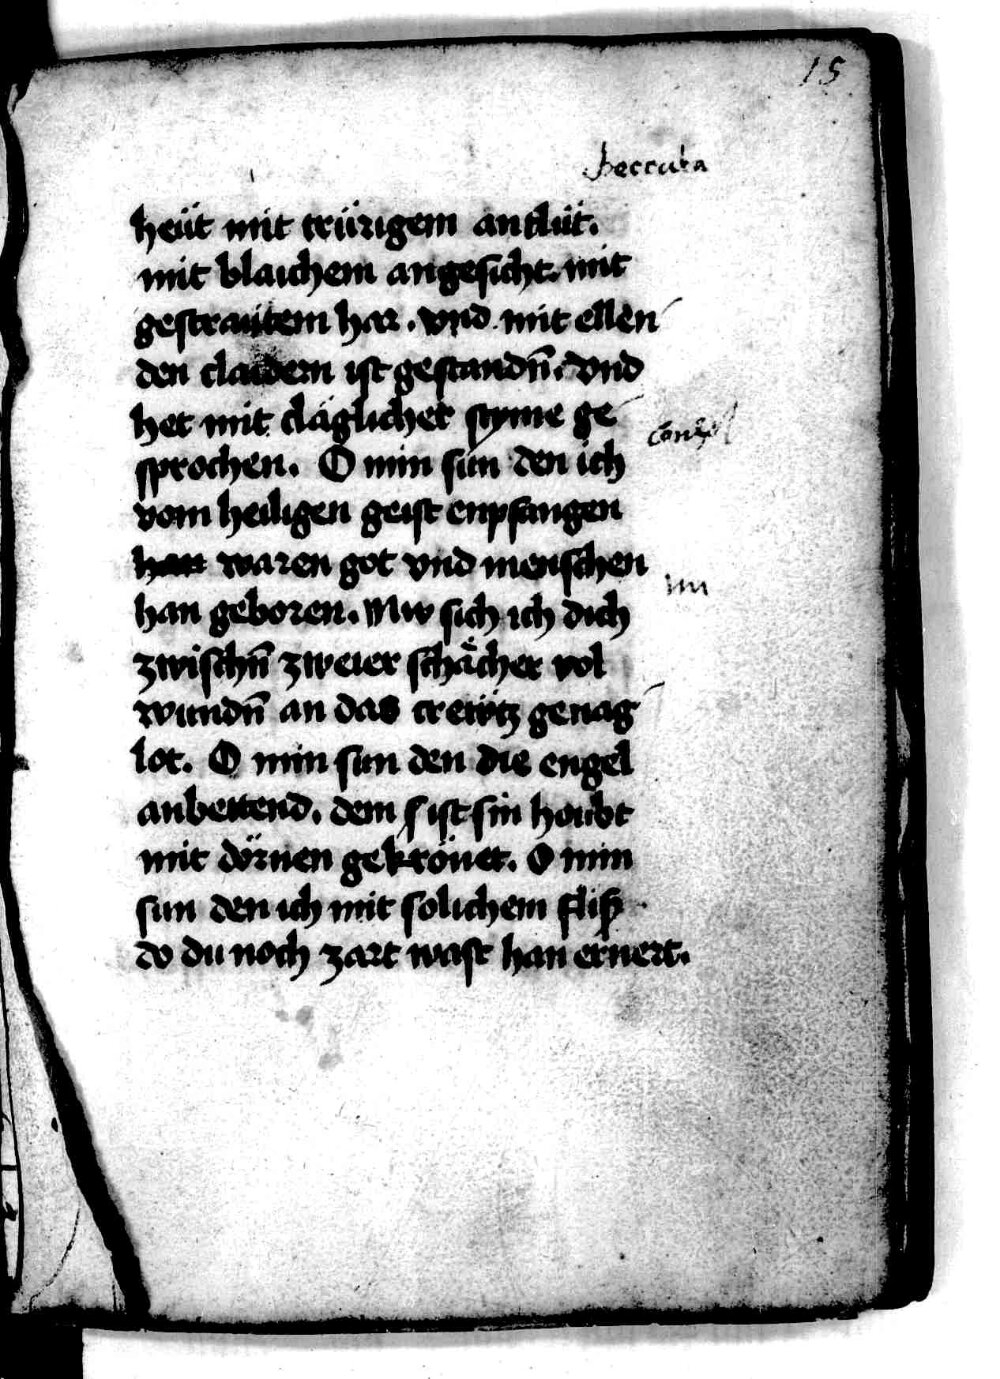 15
heccuba
heüt mit trürigem antlüt.
mit blaichem angesicht. mit
gestraütem har. vnd mit ellen
den claidern ist gestandn̄. vnd
het mit cläglicher styme ge
sprochen. O min sun den ich
vom heiligen geist enpfangen
han waren got vnd menschen
han geboren. Nw sich ich dich
zwischn̄ zweier schächer vol
wundn̄ an das creẅtz genag
lot. O min sun den die engel
anbettend. dem ist sin houbt
mit dörnen gekrönet. O min
sun den ich mit solichem fliß
do du noch zart wast han ernert.